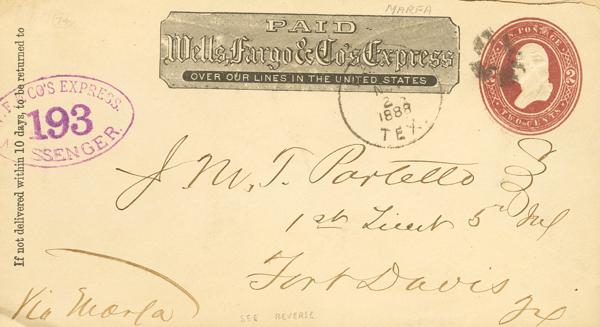 MARFA
PAID
Wells, Fargo & Co's Express
OVER OUR LINES IN THE UNITED STATES
U.S. POSTAGE
2 2
TWO CENTS
2
1888
TEX.
If not delivered within 10 days, to be returned to
W. F. & CO'S EXPRESS.
193
MESSENGER.
J M. T. Partello
1st Lieut 5" Inf
Fort Davis
Tex
Via Marfa
SEE REVERSE